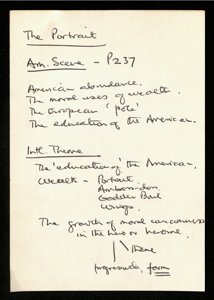 The Portrait
Am. Scene - P237
American abundance.
The moral uses of wealth.
The European 'pole'
The education of the American.
Intl. Theme
The 'education' of the American.
Wealth - Portrait
Ambassadors
Golden Bowl
Wings.
The growth of moral consciousness
in the hero or heroine.
theme
form